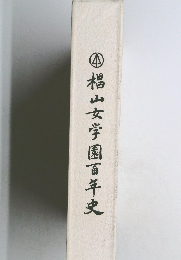 椙山女学園百年史